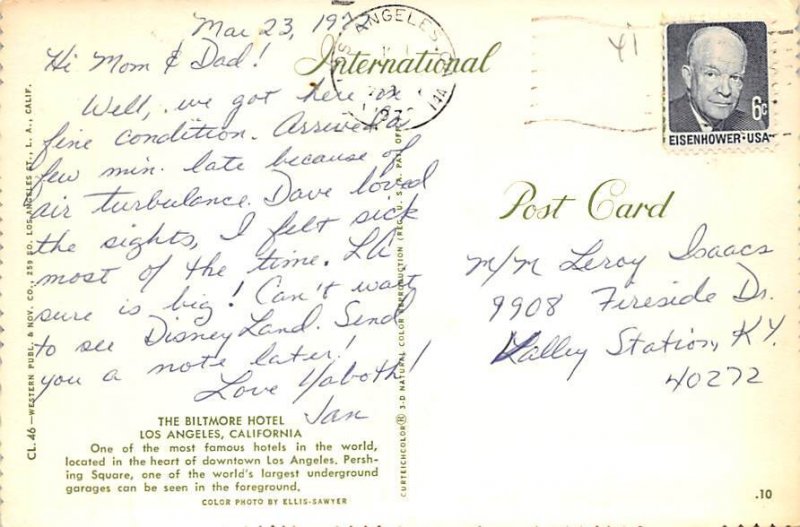 Mar 23, 1972
Hi Mom & Dad!
Well, we got here in
fine condition. Arrived a
few min. late because of
air turbulance. Dave loved
the sights, I felt sick
most of the time. LA
sure is big! Can't wait
to see DisneyLand. Send
you a note later!
Love Yaboth!
Jan
THE BILTMORE HOTEL
LOS ANGELES, CALIFORNIA
One of the most famous hotels in the world,
located in the heart of downtown Los Angeles. Persh-
ing Square, one of the world's largest underground
garages can be seen in the foreground.
COLOR PHOTO BY ELLIS-SAWYER
CL.46—WESTERN PUBL. & NOV. CO., 259 SO. LOS ANGELES ST., L. A., CALIF.
CURTEICHCOLOR® 3-D NATURAL COLOR REPRODUCTION (REG. U. S. A. PAT. OFF.)
International
Post Card
LOS ANGELES, CA
41
6c
EISENHOWER·USA
M/M Leroy Isaacs
9908 Fireside Dr.
Valley Station, KY.
40272
.10